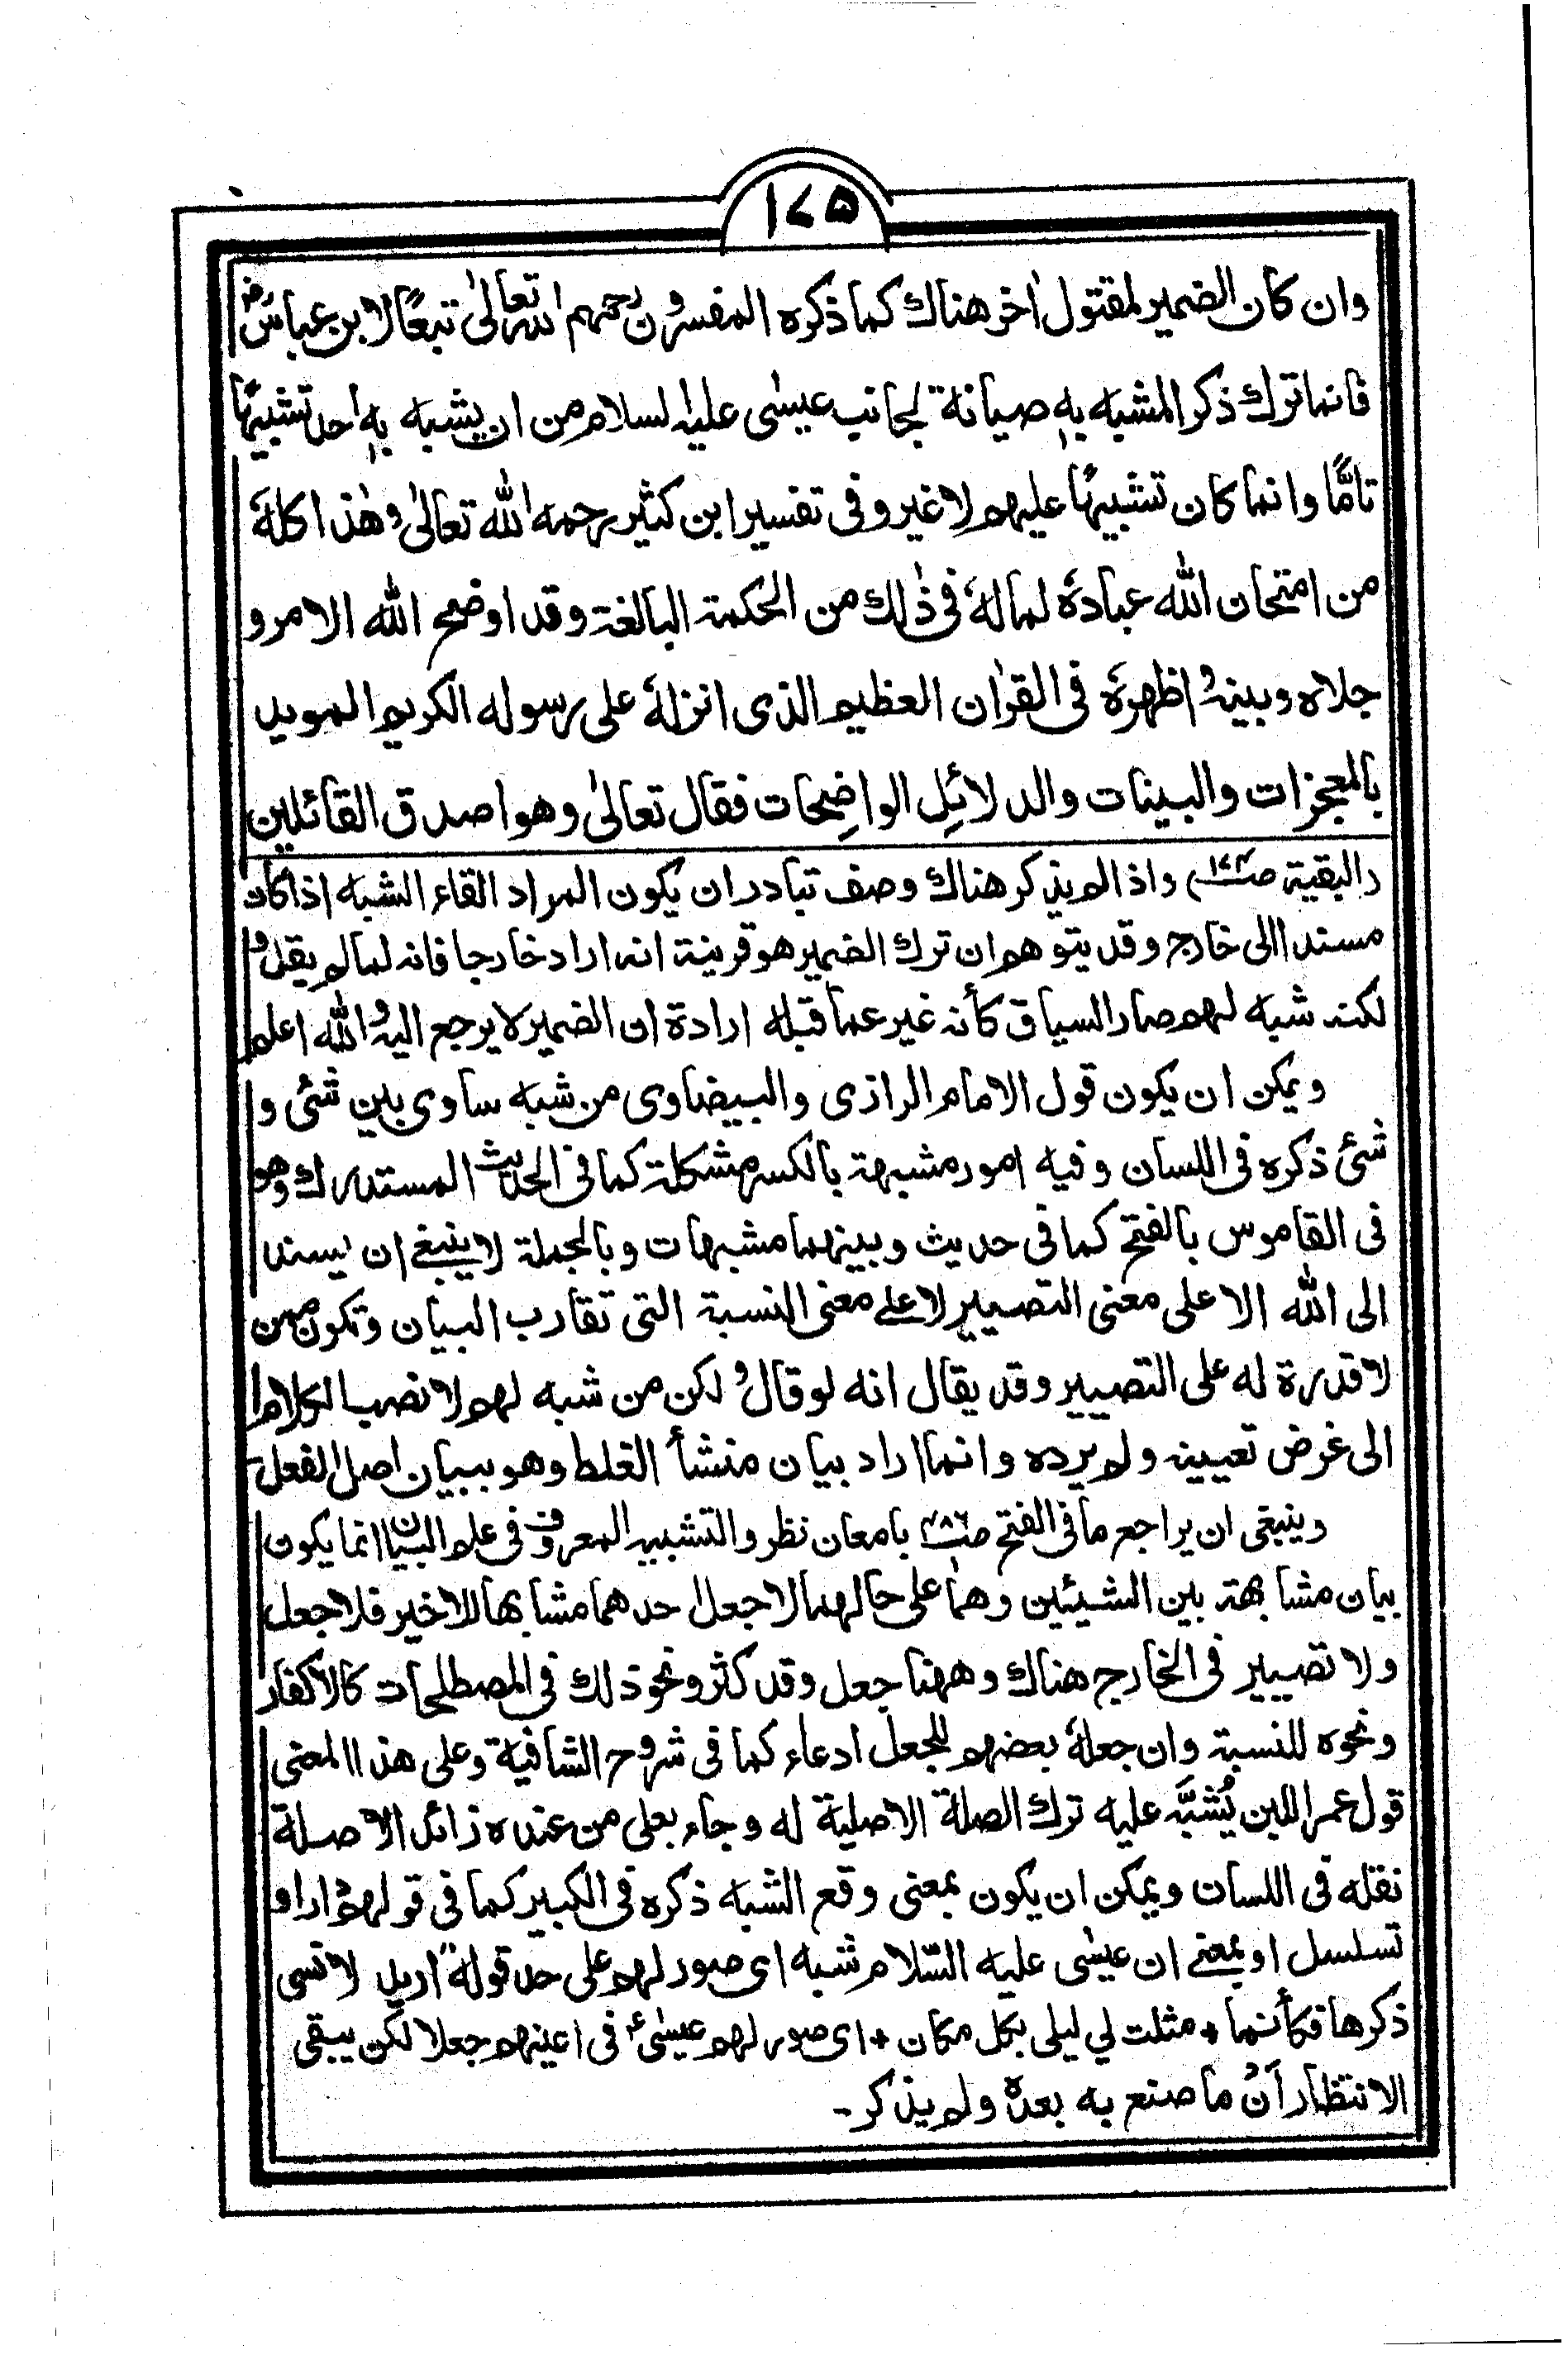 ۱۷۵
وان كان الضمير لمقتول اٰخر هناك كما ذكره المفسرون رحمهم الله تعالىٰ تبعًا لابن عباس رض
فانما ترك ذكر المشبه به صيانة لجانب عيسٰى عليه السلام من ان يشبه به احد تشبيهًا
تامًّا وانما كان تشبيهًا عليهم لا غير وفى تفسير ابن كثير رحمه الله تعالىٰ وهٰذا كله
من امتحان الله عبادهٗ لما لهٗ فى ذٰلك من الحكمة البالغة وقد اوضح الله الامر و
جلاه وبينه واظهرهٗ فى القراٰن العظيم الذى انزلهٗ على رسوله الكريم المويد
بالمعجزات والبينات والدلائِل الواضِحات فقال تعالىٰ وهو اصدق القائلين
(البقية صـ۱۷۴) واذا لم يذكر هناك وصف تبادر ان يكون المراد القاء الشبه اذا كان
مسندا الى خارج وقد يتوهم ان ترك الضمير هو قرينة انه اراد خارجا فانه لما لم يقل و
لكنه شبه لهم صار السياق كأنه غير عما قبله ارادة ان الضمير لا يرجع اليه والله اعلم
ويمكن ان يكون قول الامام الرازى والبيضاوى من شبه ساوى بين شئى و
شئ ذكره فى اللسان وفيه امور مشبهة بالكسر مشكلة كما فى الحديث المستدرك وهو
فى القاموس بالفتح كما فى حديث وبينهما مشبهات وبالجملة لا ينبغى ان يسند
الى الله الا على معنى التصيير لا على معنى النسبة التى تقارب البيان وتكون ممن
لا قدرة له على التصيير وقد يقال انه لو قال ولكن من شبه لهم لانصب الكلام
الى غرض تعيينه ولم يرده وانما اراد بيان منشأ الغلط وهو ببيان اصل الفعل
وينبغى ان يراجع ما فى الفتح صـ بامعان نظر والتشبيه المعروف فى علم البيان انما يكون
بيان مشابهة بين الشيئين وهما على حالهما لا جعل احدهما مشابها للاخير فلا جعل
ولا تصيير فى الخارج هناك وههنا جعل وقد كثر ونحو ذلك فى المصطلحات كالاكفار
ونحوه للنسبة وان جعلهٗ بعضهم للجعل ادعاء كما فى شروح الشافية وعلى هذا المعنى
قول عمر اللبن يُشَبَّه عليه ترك الصلة الاصلية له وجاء بعلى من عنده زائد الا صلة
نقله فى اللسان ويمكن ان يكون بمعنى وقع الشبه ذكره فى الكبير كما فى قولهم دار او
تسلسل او بمعنى ان عيسٰى عليه السّلام شبه اى صور لهم على حد قوله" اريد لانسى
ذكرها فكأنما + مثلت لي ليلى بكل مكان + اى صور لهم عيسٰى ع فى اعينهم جعلا لكن يبقى
الانتظار اَنْ ما صنع به بعدهٗ ولم يذكر ـ